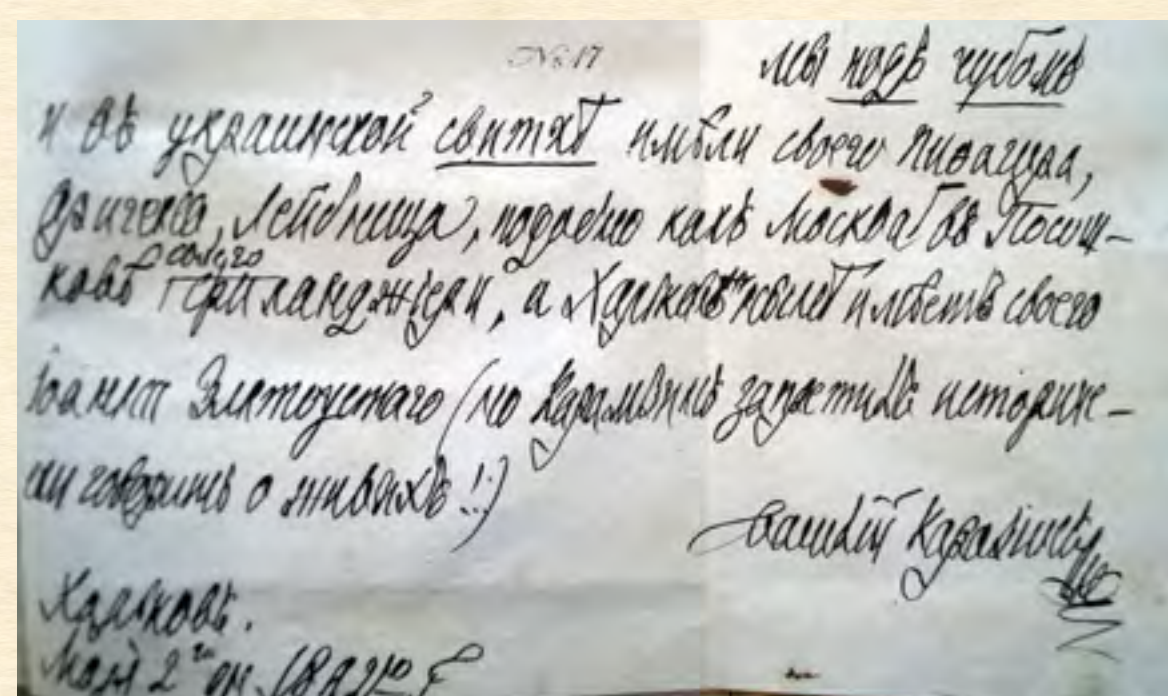 № 17
мы подъ чубомъ
и въ украинской свиткѣ имѣли своего Пиѳагора,
Оригена, Лейбница, подобно какъ Москва въ Посош-
ковѣ своего Филанджіери, а Харьковъ имѣетъ своего
Іоанна Златоустаго (но Карамзинъ запретилъ историче-
ски говорить о живыхъ!!)
Василій Каразинъ
Харьковъ.
Мая 2го